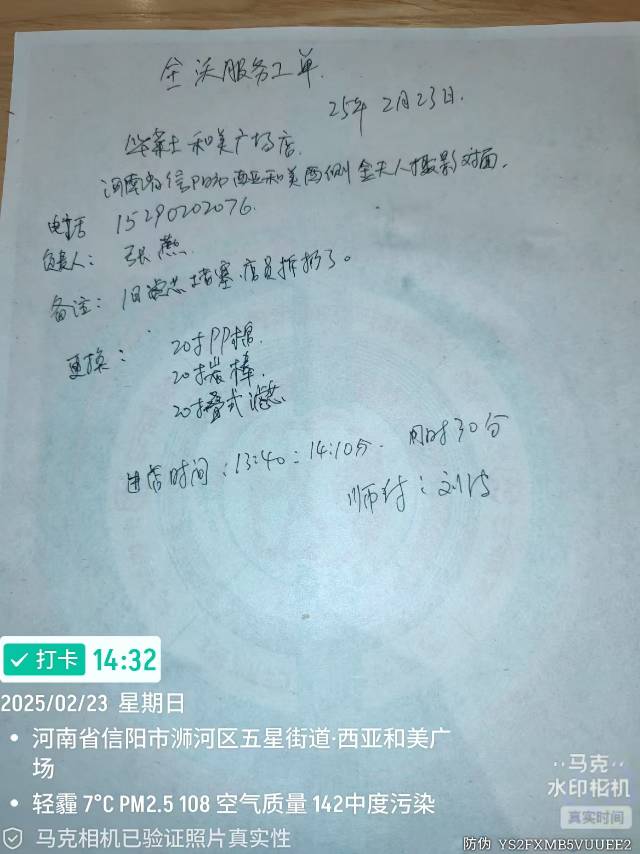 全沃服务工单.
25年2月23日.
华莱士和美广场店.
河南省信阳市西亚和美西侧金夫人摄影对面.
电话 15290202076.
负责人: 张燕.
备注: 旧滤芯堵塞.店员拆扔了。
更换: 20寸PP棉.
20寸炭棒.
20寸叠式滤芯
进店时间:13:40:14:10分. 用时30分
师付:刘
打卡 14:32
2025/02/23 星期日
河南省信阳市浉河区五星街道·西亚和美广
场
轻霾 7°C PM2.5 108 空气质量 142中度污染
马克相机已验证照片真实性
马克
水印相机
真实时间
防伪 YS2FXMB5VUUEE2